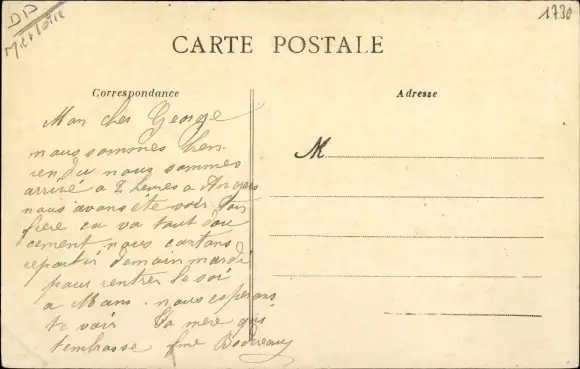 DD
Met Loire
1730
CARTE POSTALE
Correspondance
Adresse
M
Mon cher George
nous sommes bien
rendu nous sommes
arrivé a 2 heures a Angers
nous avons été voir ton
frere ca va tout dou
cement nous contons
repartir demain mardi
pour rentrer le soi
a Mans. nous esperons
te voir Ta mere qui
tembrasse fme